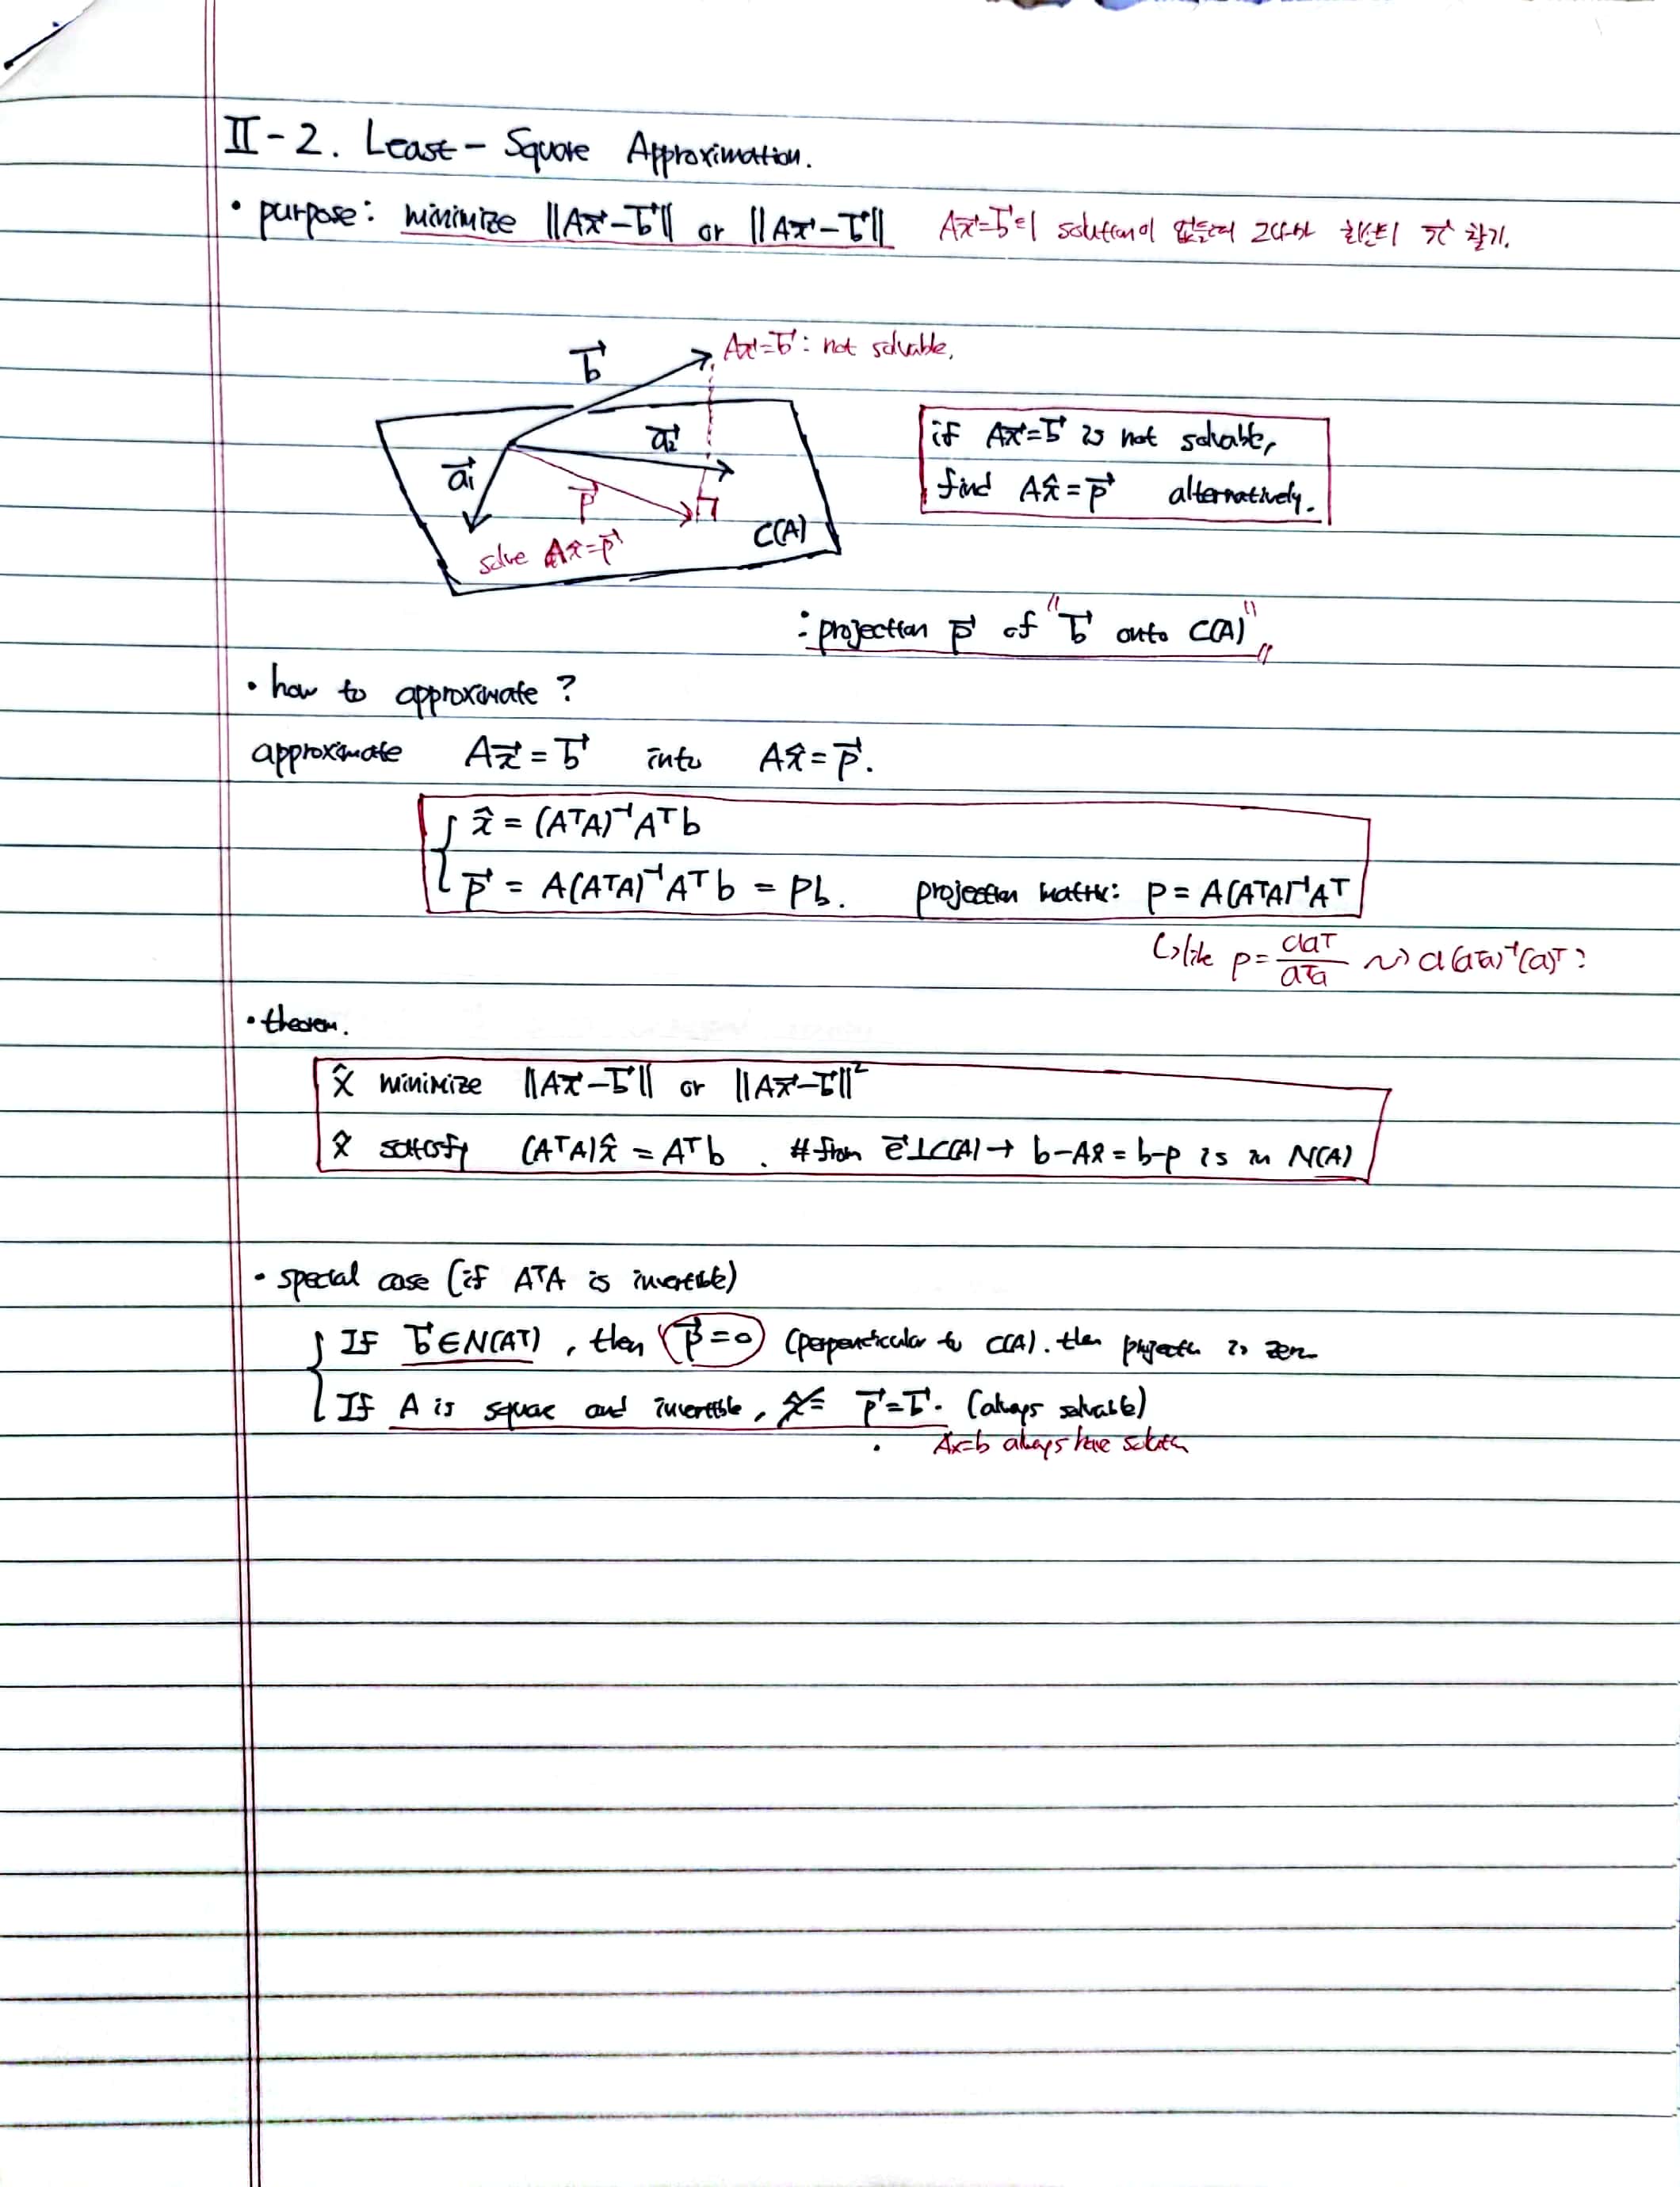 II-2. Least-Square Approximation.
• purpose: minimize ||Ax⃗-b⃗|| or ||Ax⃗-b⃗|| Ax⃗=b⃗의 solution이 없을때 그나마 최선의 x⃗ 찾기.
b⃗ Ax⃗=b⃗: not solvable.
a⃗₂
if Ax⃗=b⃗ is not solvable,
a⃗₁
p⃗
find Ax̂=p⃗ alternatively.
C(A)
solve Ax̂=p⃗
: projection p⃗ of "b⃗ onto C(A)"
• how to approximate?
approximate Ax⃗=b⃗ into Ax̂=p⃗.
x̂ = (AᵀA)⁻¹Aᵀb
p⃗ = A(AᵀA)⁻¹Aᵀb = Pb. projection matrix: P = A(AᵀA)⁻¹Aᵀ
↳ like P = aaᵀ/aᵀa ~> a(aᵀa)⁻¹(a)ᵀ?
• theorem.
x̂ minimize ||Ax⃗-b⃗|| or ||Ax⃗-b⃗||²
x̂ satisfy (AᵀA)x̂ = Aᵀb. #from e⃗⊥C(A) → b-Ax̂ = b-p is in N(A)
• special case (if AᵀA is invertible)
If b⃗∈N(Aᵀ), then p⃗=0 (perpendicular to C(A). then projection is zero
If A is square and invertible, p⃗=b⃗. (always solvable)
Ax=b always have solution